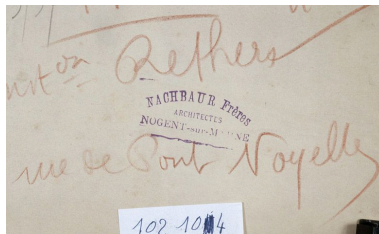 Rethers
NACHBAUR Frères
ARCHITECTES
NOGENT-sur-M NE
rue de Pont Noyelle
102 10 4